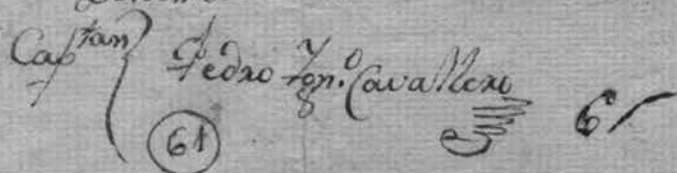 Cap.tan Pedro Ygn.o Cavallero 61
61